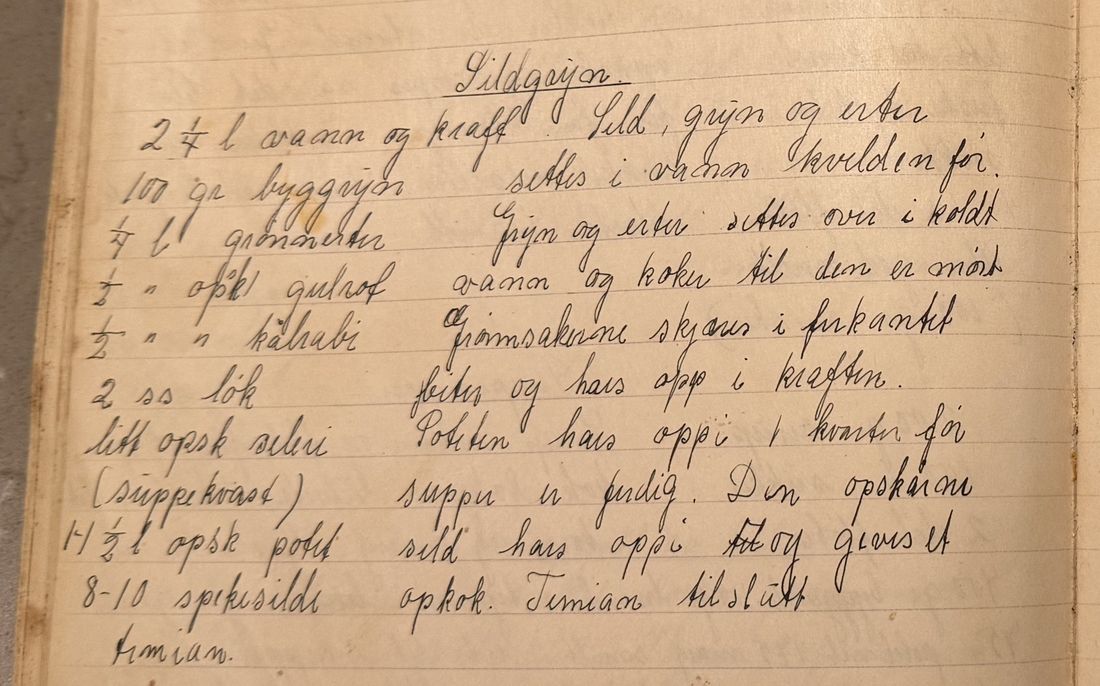 Sildgrýn.
2 1/4 l vann og kraft. Sild, grýn og erter
100 gr byggrýn settes i vann kvelden før.
1/4 l grønnerter Grýn og erter settes over i koldt
1/2 " opsk gulrot vann og koker til den er mørt
1/2 " " kålrabi Grønnsakerne skjæres i firkantet
2 ss løk biter og haes opp i kraften.
litt opsk seleri Poteten haes oppi 1 kvarter før
(suppekvast) suppen er ferdig. Den opskårne
1-1 1/2 l opsk potet sild haes oppi og gives et
8-10 spekesilde opkok. Timian tilslutt
timian.